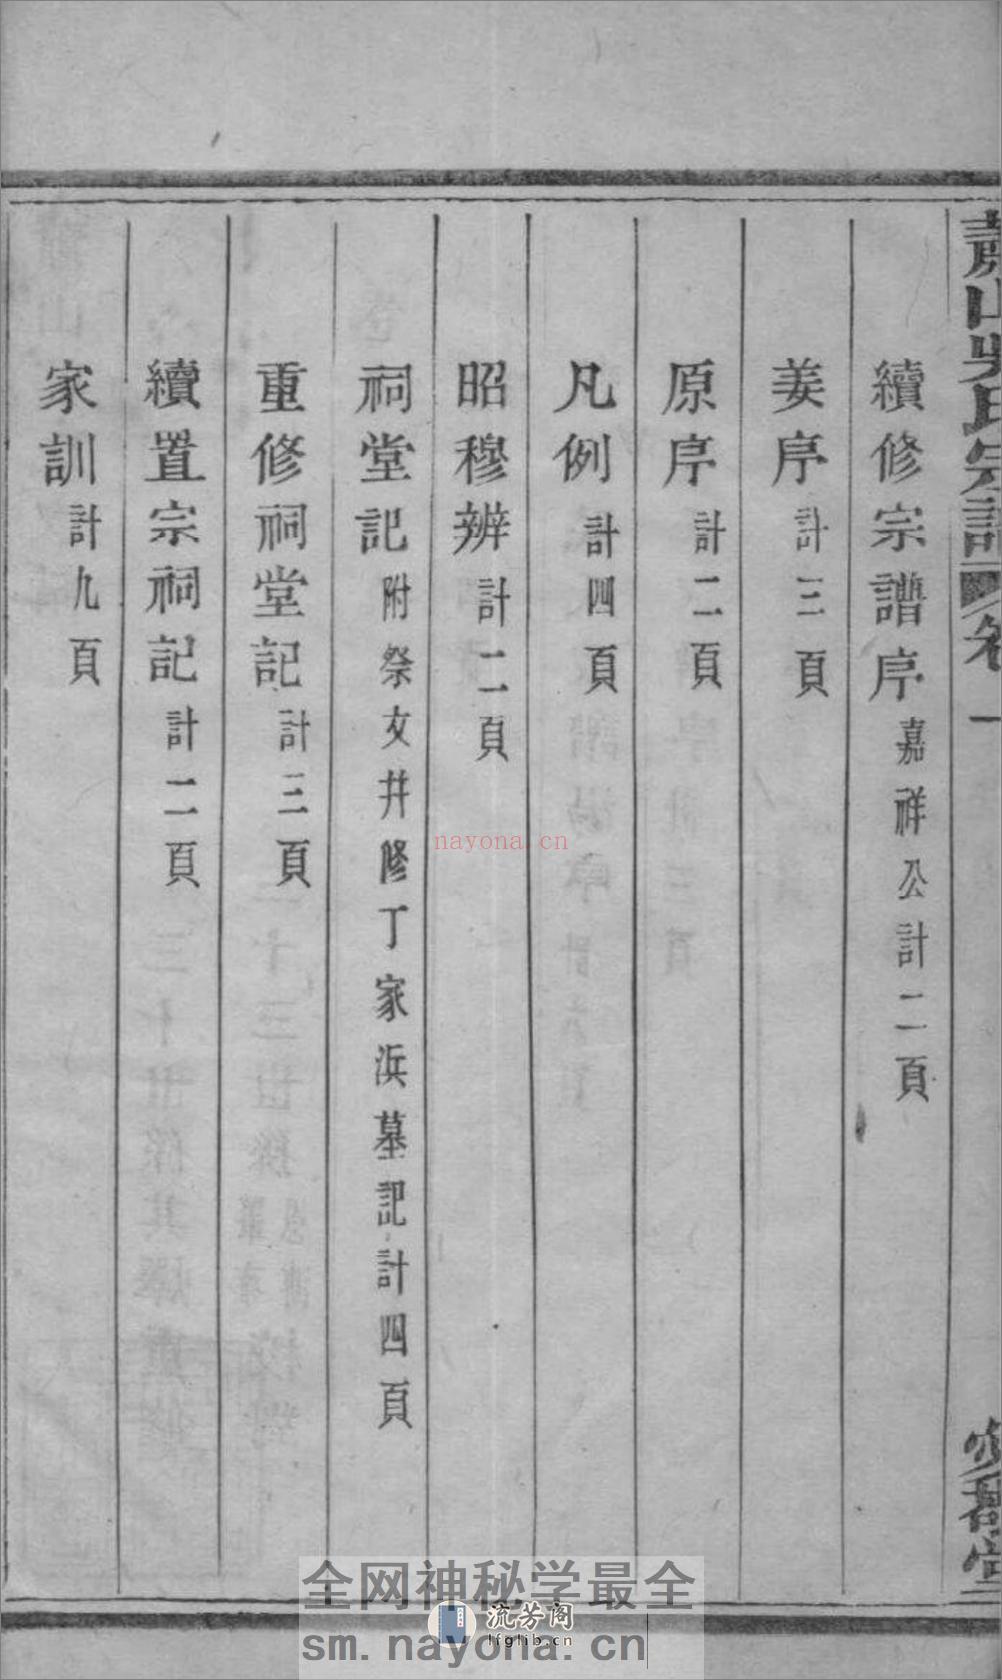 蕭山吳氏宗譜 卷一
續修宗譜序 嘉祥公計二頁
姜序 計三頁
原序 計二頁
凡例 計四頁
昭穆辨 計二頁
祠堂記 附祭文并修丁家浜墓記計四頁
重修祠堂記 計三頁
續置宗祠記 計二頁
家訓 計九頁
nayona.cn
全网神秘学最全
流芳阁
lfglib.cn
sm.nayona.cn